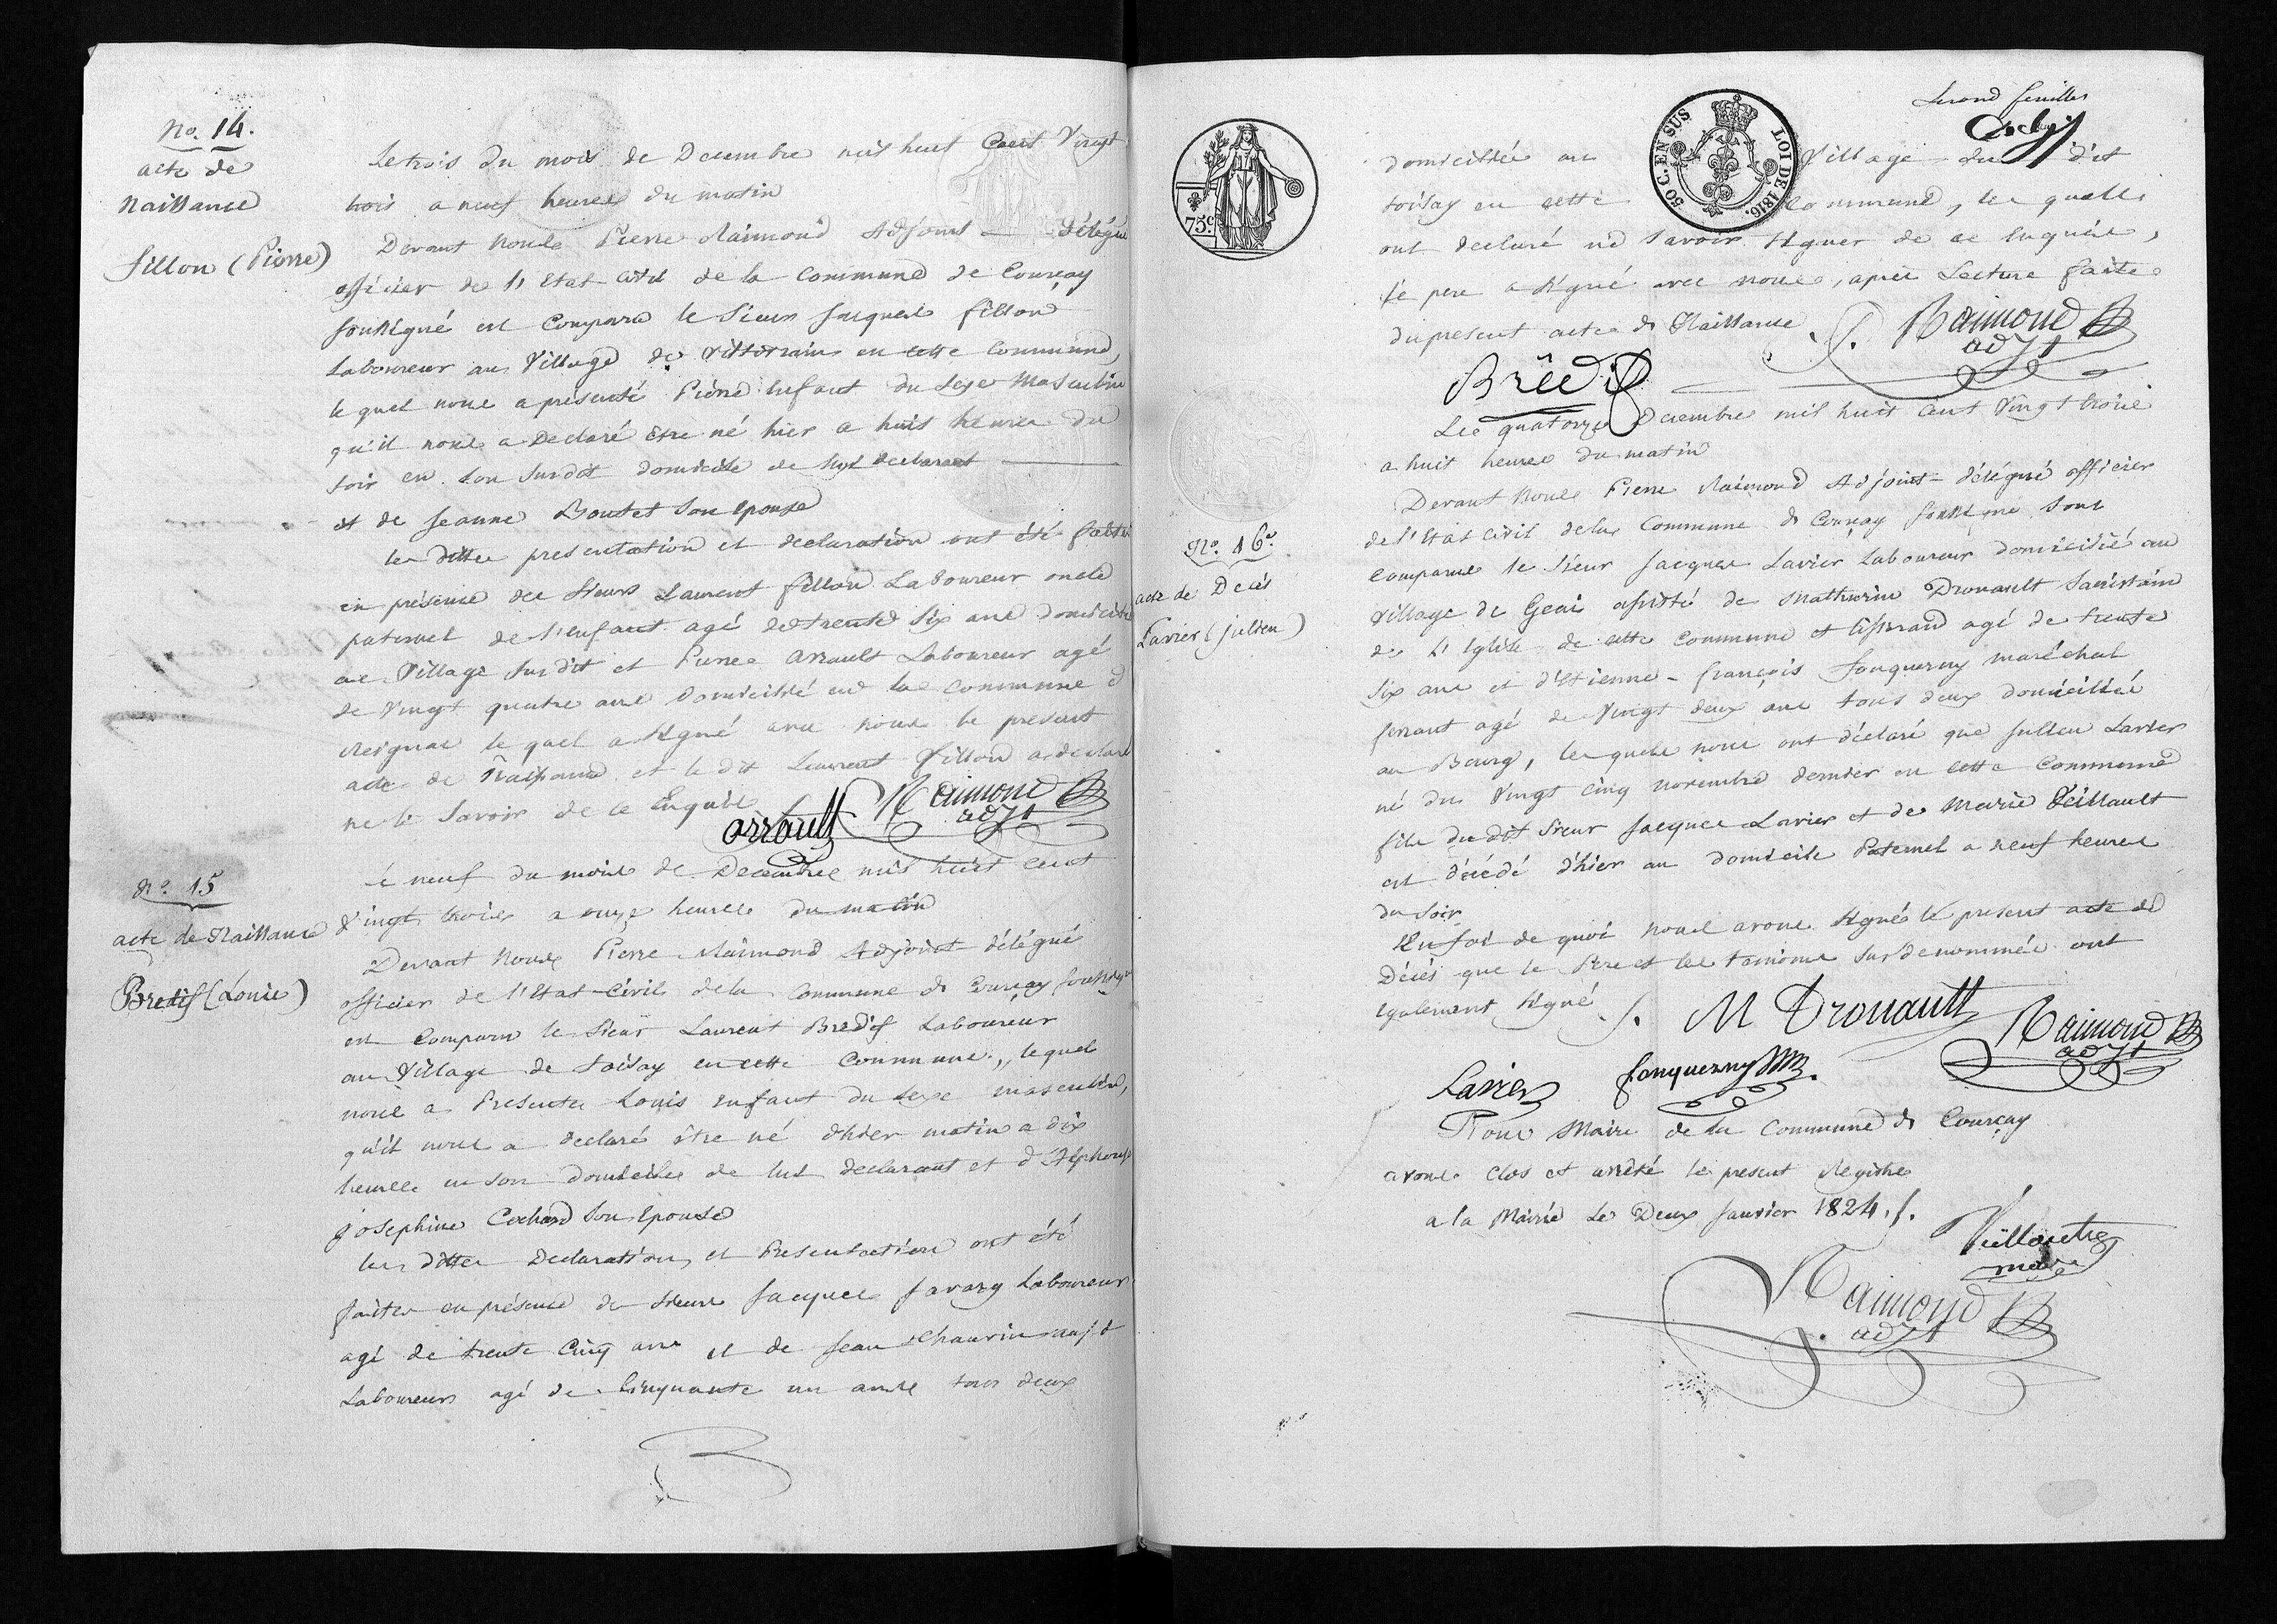 No. 14.
acte de
Naissance
fillon (Pierre)
Le trois du mois de Decembre mil huit Cent Vingt
trois a neuf heures du matin
Devant Nous Pierre Raimond Adjoint délégué
officier de l'Etat-Civil de la Commune de Courçay
soussigné est Comparu le Sieur Jacques fillon
Laboureur au Village de en cette Commune,
le quel nous a présenté Pierre Enfant du Sexe Masculin
qu'il nous a Declaré être né hier a huit heures du
soir en son Susdit domicile de luy declarant
et de Jeanne Boutet Son Epouse
les dittes presentation et declaration ont été faittes
en présence des Sieurs Laurent fillon Laboureur oncle
paternel de l'enfant agé de trente Six ans domicilié
au Village Susdit et Pierre Arrault Laboureur agé
de Vingt quatre ans Domicilié en la Commune d
Reignac le quel a Signé avec nous le present
acte de Naissance et le dit Laurent fillon a declaré
ne le Savoir de ce Enquis
arrault Raimond
adjt
No. 15
acte de Naissance
Bredif (Louis)
Le neuf du mois de Decembre mil huit cent
Vingt trois a onze heures du matin
Devant Nous Pierre Raimond Adjoint délégué
officier de l'Etat-Civil de la Commune de Courçay soussigné
est Comparu le Sieur Laurent Bredif Laboureur
au Village de toisay en cette Commune, lequel
nous a Presenté Louis enfant du Sexe masculin,
qu'il nous a declaré être né d'hier matin a dix
heures en son domicile de lui declarant et d'
Josephine Cochard Son Epouse
les dittes Declaration et Presentation ont été
faites en présence de Sieurs Jacques Savary Laboureur
agé de trente Cinq ans et de Jean
Laboureur agé de Cinquante un ans tous deux
Second feuillet
domiciliés au Village du dit
toisay en cette Commune, les quels
ont declaré ne Savoir Signer de ce Enquis,
le pere a Signé avec nous, après Lecture faite
du present acte de Naissance
Raimond
adjt
Brédif
50 C. EN SUS
LOI DE 1816.
75c
No. 16e
acte de Décès
Lavier (julien)
Le quatorze Decembre mil huit cent Vingt trois
a huit heures du matin
Devant Nous Pierre Raimond Adjoint délégué officier
de l'Etat Civil de la Commune de Courçay soussigné Sont
Comparus le Sieur Jacques Lavier Laboureur domicilié au
Village de Geai assisté de Mathurin Drouault Sacristain
de l'Eglise de cette Commune et tisserand agé de trente
Six ans et d'Etienne-françois fouquerny maréchal
ferrant agé de Vingt deux ans tous deux domiciliés
au Bourg, les quels nous ont déclaré que Julien Lavier
né du Vingt cinq novembre dernier en cette Commune
fils du dit Sieur Jacques Lavier et de Marie Veillault
est décédé d'hier au domicile Paternel a neuf heures
du soir
En foi de quoi nous avons Signé le present acte de
Décès que le Pere et les temoins Sus denommés ont
également Signé
M Drouault
Raimond
adjt
Lavier
fouquerny
Nous Maire de la Commune de Courçay
avons clos et arrêté le present Registre
a la Mairie Le Deux Janvier 1824.
maire
Raimond
adjt